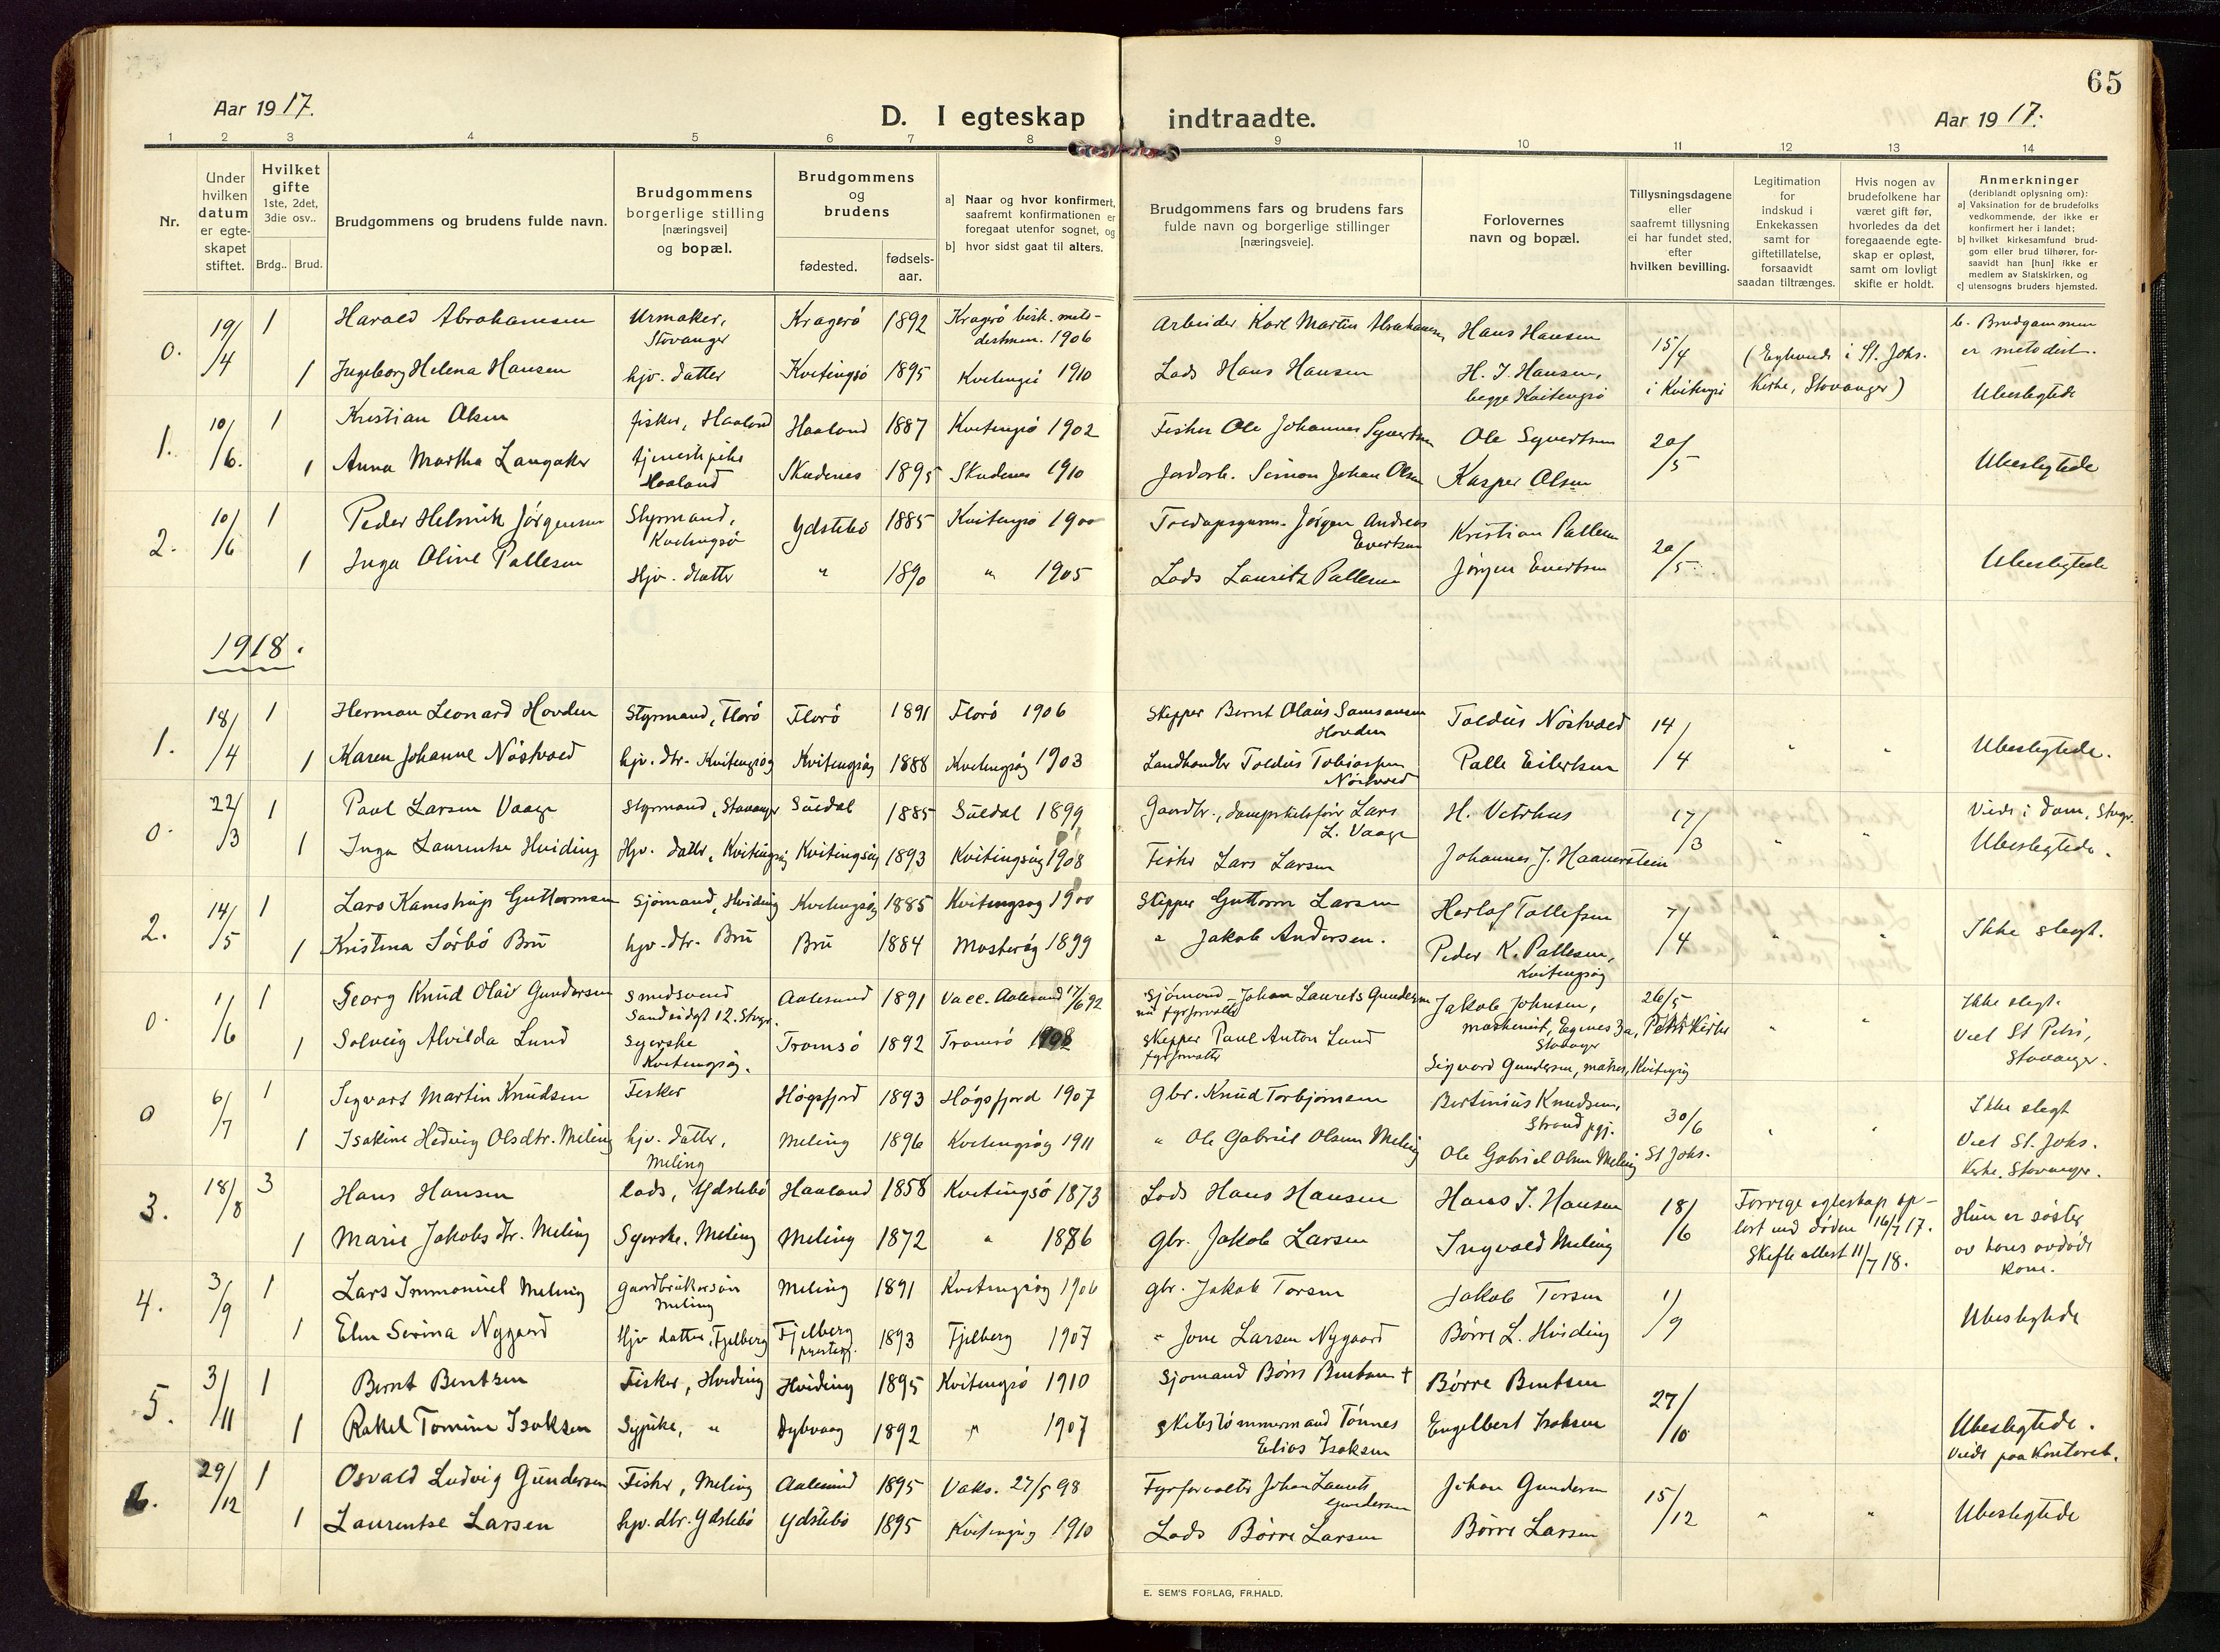 65
Aar 1917.
D. I egteskap indtraadte.
Aar 1917.
1 2 3 4 5 6 7 8 9 10 11 12 13 14
Nr.
Under hvilken datum er egteskapet stiftet.
Hvilket gifte 1ste, 2det, 3die osv..
Brdg.. Brud.
Brudgommens og brudens fulde navn.
Brudgommens borgerlige stilling [næringsvei] og bopæl.
Brudgommens og brudens
fødested.
fødselsaar.
a] Naar og hvor konfirmert, saafremt konfirmationen er foregaat utenfor sognet, og
b] hvor sidst gaat til alters.
Brudgommens fars og brudens fars fulde navn og borgerlige stillinger [næringsveie].
Forlovernes navn og bopæl.
Tillysningsdagene eller saafremt tillysning ei har fundet sted, efter hvilken bevilling.
Legitimation for indskud i Enkekassen samt for giftetillatelse, forsaavidt saadan tiltrænges.
Hvis nogen av brudefolkene har været gift før, hvorledes da det foregaaende egteskap er opløst, samt om lovligt skifte er holdt.
Anmerkninger (deriblandt oplysning om): a] Vaksination for de brudefolks vedkommende, der ikke er konfirmert her i landet; b] hvilket kirkesamfund brudgom eller brud tilhører, forsaavidt han [hun] ikke er medlem av Statskirken, og c] utensogns bruders hjemsted.
0. 19/4 1 Harald Abrahamsen Urmaker, Stavanger Kragerø 1892 Kragerø 1906 Arbeider Karl Martin Abrahamsen Hans Hansen 15/4 i Kvitingsø b. Brudgommen er metodist.
1 Ingeborg Helena Hansen hjv. datter Kvitingsø 1895 Kvitingsø 1910 Lods Hans Hansen H. J. Hansen, begge Kvitingsø i St. Johs. Kirke, Stavanger) Ubeslegtede
1. 10/6. 1 Kristian Olsen fisker, Haaland Haaland 1887 Kvitingsø 1902 Fisker Ole Johannes Syvertsen Ole Syvertsen 20/5
1 Anna Martha Langaker tjenestepike Haaland Skudenes 1895 Skudenes 1910 Jordarb. Simon Johan Olsen Kasper Olsen Ubeslegtede
2. 10/6 1 Peder Helmik Jørgensen Styrmand, Kvitingsø Ydstebø 1885 Kvitingsø 1900 Jørgen Andreas Evertsen Kristian Pallesen 20/5
1 Inga Oline Pallesen Hjv. datter " 1890 " 1905 Lods Lauritz Pallesen Jørgen Evertsen Ubeslegtede
1918.
1. 18/4 1 Herman Leonard Hovden Styrmand, Florø Florø 1891 Florø 1906 Skipper Bernt Olaus Samsonsen Hovden Toldus Nøstvold 14/4
1 Karen Johanne Nøstvold hjv. dtr. Kvitingsøy Kvitingsøy 1888 Kvitingsøy 1903 Landhandler Toldus Tobiassen Nøstvold Palle Eilertsen " " Ubeslegtede.
0. 22/3 1 Paul Larsen Vaage Styrmand, Stavanger Suldal 1885 Suldal 1899 Gaardbr., dampskibsfører Lars L. Vaage H. Vetrhus 17/3 Viede i dom, Stvgr.
1 Inga Laurentse Hviding Hjv. datter, Kvitingsøy Kvitingsøy 1893 Kvitingsøy 1908 Fisker Lars Larsen Johannes J. Haaverstein " " Ubeslegtede.
2. 14/5 1 Lars Kamstrup Guttormsen Sjømand, Hviding Kvitingsøy 1885 Kvitingsøy 1900 Skipper Guttorm Larsen Herlof Tollefsen 7/4
1 Kristina Sørbø Bru hjv. dtr. Bru Bru 1884 Mosterøy 1899 " Jakob Andersen. Peder K. Pallesen, Kvitingsøy " " Ikke slegt.
0. 1/6 1 Georg Knud Olav Gundersen Smedsvend Sandvidgt 12. Stvgr. Aalesund 1891 Vacc. Aalesund 17/6 92 Sjømand Johan Laurets Gundersen nu fyrforvalter Jakob Johnsen, maskinist, Egenes 3a, Stavanger 26/5 Petri Kirke Ikke slegt.
1 Solveig Alvilda Lund Syerske Kvitingsøy. Tromsø 1892 Tromsø 1908 Skipper Paul Anton Lund fyrforvalter Sigvard Gundersen, matros, Kvitingsøy " " Viet St Petri, Stavanger.
0 6/7 1 Sigvart Martin Knudsen Fisker Høgsfjord 1893 Høgsfjord 1907 gbr. Knud Torbjørnsen Bertinius Knudsen, Strand pgj. 30/6 Ikke slegt
1 Isakine Hedvig Olsdtr. Meling hjv. datter, Meling Meling 1896 Kvitingsøy 1911 " Ole Gabriel Olsen Meling Ole Gabriel Olsen Meling St Johs. " " Viet St. Johs. Kirke, Stavanger.
3. 18/8 3 Hans Hansen lods, Ydstebø Haaland 1858 Kvitingsø 1873 Lods Hans Hansen Hans J. Hansen 18/6 Forrige egteskap opløst ved døden 16/7 17. Skifte attest 11/7 18. Hun er søster av hans avdøde kone.
1 Marie Jakobs dtr. Meling Syerske. Meling Meling 1872 " 1886 gbr. Jakob Larsen Ingvald Meling
4. 3/9 1 Lars Immanuel Meling Gaardbrukersøn Meling Meling 1891 Kvitingsøy 1906 gbr. Jakob Torsen Jakob Torsen 1/9
1 Elen Serina Nygaard Hjv datter, Fjelberg Fjelberg prestegj. 1893 Fjelberg 1907 " Jone Larsen Nygaard Børre L. Hviding Ubeslegtede
5. 3/11 1 Bernt Bentsen Fisker, Hviding Hviding 1895 Kvitingsø 1910 Sjømand Børre Bentsen † Børre Bentsen 27/10
1 Rakel Tomine Isaksen Sypike, " Dybvaag 1892 " 1907 Skibstømmermand Tønnes Elias Isaksen Engelbert Isaksen Ubeslegtede. Viede paa Kontoret.
6. 29/12 1 Osvald Ludvig Gundersen Fisker, Meling Aalesund 1895 Vaks. 27/5 98 Fyrforvalter Johan Laurets Gundersen Johan Gundersen 15/12
1 Laurentse Larsen hjv. dtr. Ydstebø Ydstebø 1895 Kvitingsøy 1910 Lods Børre Larsen Børre Larsen " " Ubeslegtede
E. SEM'S FORLAG, FR.HALD.